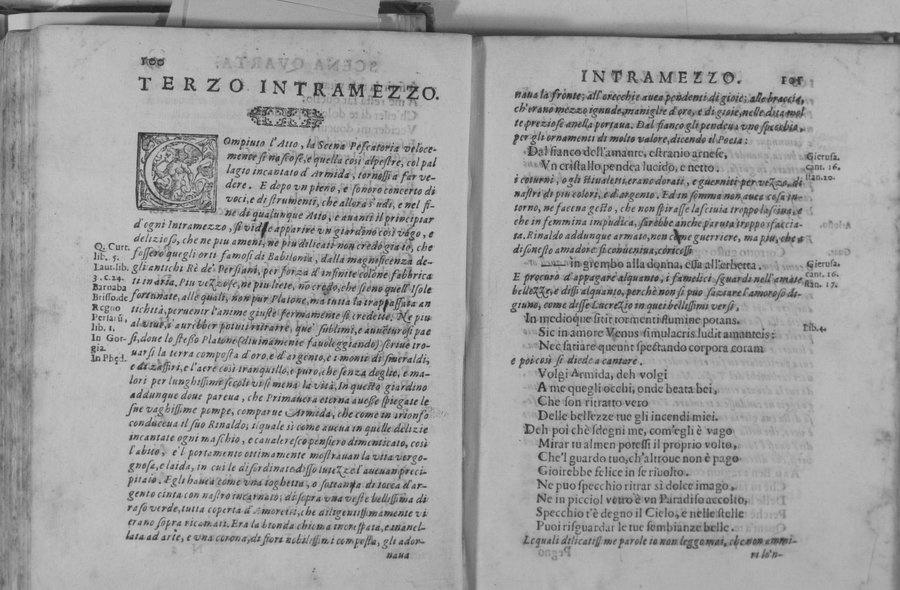 100
TERZO INTRAMEZZO.
COmpiuto l'Atto, la Scena Pescatoria veloce-
mente si nascose, e quella così alpestre, col pal
lagio incantato d'Armida, tornossi a far ve-
dere. E dopo vn pieno, e sonoro concerto di
voci, e di strumenti, che allora s'udì, e nel fi-
ne di qualunque Atto, e auanti il principiar
d'ogni Intramezzo, si vide apparire vn giardino così vago, e
delizioso, che ne piu ameni, ne piu dilicati non credo già io, che
fossero quegli orti famosi di Babilonia, dalla magnificenza de-
gli antichi Rè de' Persiani, per forza d'infinite colonne fabbrica
ti in aria. Piu vezzose, ne piu liete, no credo, che sieno quell'Isole
fortunate, alle quali, non pur Platone, ma tutta la trapassata an
tichità, peruenir l'anime giuste fermamente si credette. Ne piu
al viuo aurebber potuti ritrarre, que' sublimi, e auuenturosi pae
si, doue lo stesso Platone (diuinamente fauoleggiando) scriue tro
uarsi la terra composta d'oro, e d'argento, e i monti di smeraldi,
e di zaffiri, e l'aere così tranquillo, e puro, che senza doglie, e ma-
lori per lunghissimi secoli vi si mena la vita. In questo giardino
addunque doue pareua, che Primauera eterna auesse spiegate le
sue vaghissime pompe, comparue Armida, che come in trionfo
conduceua il suo Rinaldo; il quale sì come aueua in quelle delizie
incantate ogni maschio, e caualeresco pensiero dimenticato, così
l'abito, e 'l portamento ottimamente mostrauan la vita vergo-
gnosa, e laida, in cui le disordinate dissolutezze l'aueuan preci-
pitato. Egli haueа come vna toghetta, o sottana di tocca d'ar-
gento cinta con nastro incarnato; di sopra vna veste bellissima di
raso verde, tutta coperta d'Amoretti, che diligentissimamente vi
erano sopra ricamati. Era la bionda chioma increspata, e inanel-
lata ad arte, e vna corona, di fiori nobilissimi composta, gli ador-
naua
Q. Curt.
lib. 5.
Laur. lib.
3. c. 14.
Barnaba
Brisso. de
Regno
Persarū,
lib. 1.
In Gor-
gia.
In Phęd.
INTRAMEZZO. 101
naua la fronte; all'orecchie auea pendenti di gioie; alle braccia,
ch'erano mezzo ignude, maniglie d'oro, e di gioie, nelle dita mol
te preziose anella portaua. Dal fianco gli pendeua vno specchio,
per gli ornamenti di molto valore, dicendo il Poeta:
Dal fianco dell'amante, estranio arnese,
Vn cristallo pendea lucido, e netto.
i coturni, o gli stiualetti erano dorati, e guerniti per vezzo, di
nastri di piu colori, e d'argento. Ed in somma non auea cosa in-
torno, ne faceua gesto, che non spirasse lasciuia troppo lasciua, e
che in femmina impudica, sarebbe anche paruta troppo sfaccia-
ta. Rinaldo addunque armato, non come guerriere, ma piu, che a
disonesto amadore si conueniua, coricossi
in grembo alla donna, essa all'erbetta.
E procurò d'appagare alquanto, i famelici sguardi nell'amate
bellezze, e dissi alquanto, perchè non si può saziare l'amoroso di-
giuno, come disse Lucrezio in quei bellissimi versi,
In medioque sitit torrenti flumine potans.
Sic in amore Venus simulacris ludit amanteis:
Nec satiare queunt spectando corpora coram
e poi così si diede a cantare.
Volgi Armida, deh volgi
A me quegli occhi, onde beata bei,
Che son ritratto vero
Delle bellezze tue gli incendi miei.
Deh poi chè sdegni me, com'egli è vago
Mirar tu almen potessi il proprio volto,
Che'l guardo tuo, ch'altroue non è pago
Gioirebbe felice in se riuolto.
Ne può specchio ritrar sì dolce imago,
Ne in picciol vetro è vn Paradiso accolto,
Specchio t'è degno il Cielo, e nelle stelle
Puoi risguardar le tue sembianze belle.
Le quali dilicatissime parole io non leggo mai, che non ammi-
ri lo'n-
Gierusa.
cant. 16.
stan. 20.
Gierusa.
cant. 16.
stan. 17.
Lib. 4.